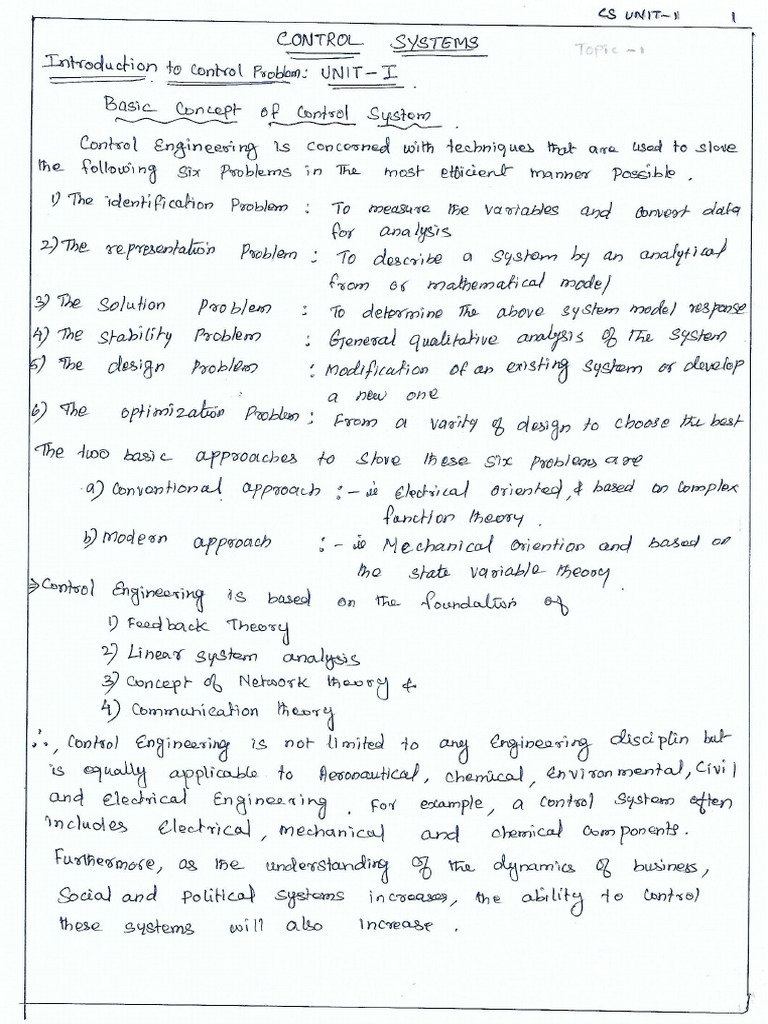 CS UNIT-1 1
CONTROL SYSTEMS
Topic -1
Introduction to Control Problem: UNIT-I
Basic Concept of Control System.
Control Engineering is concerned with techniques that are used to slove
the following six Problems in the most efficient manner Possible.
1) The identification Problem : To measure the variables and convert data
for analysis
2) The representation Problem : To describe a system by an analytical
from or mathematical model
3) The Solution Problem : To determine the above system model response
4) The stability Problem : General qualitative analysis of the system
5) The design Problem : Modification of an existing system or develop
a new one
6) The optimization Problem : From a varity of design to choose the best
The two basic approaches to slove these six Problems are
a) Conventional approach :- ie Electrical oriented, & based on complex
function theory.
b) Modern approach :- ie Mechanical oriention and based on
the state variable theory.
⇒ Control Engineering is based on the foundation of
1) Feedback Theory
2) Linear system analysis
3) Concept of Network theory &
4) Communication theory
∴, Control Engineering is not limited to any Engineering disciplin but
is equally applicable to Aeronautical, chemical, Environmental, Civil
and Electrical Engineering. For example, a control system often
includes Electrical, mechanical and chemical components.
Furthermore, as the understanding of the dynamics of business,
Social and Political systems increases, the ability to control
these systems will also increase.